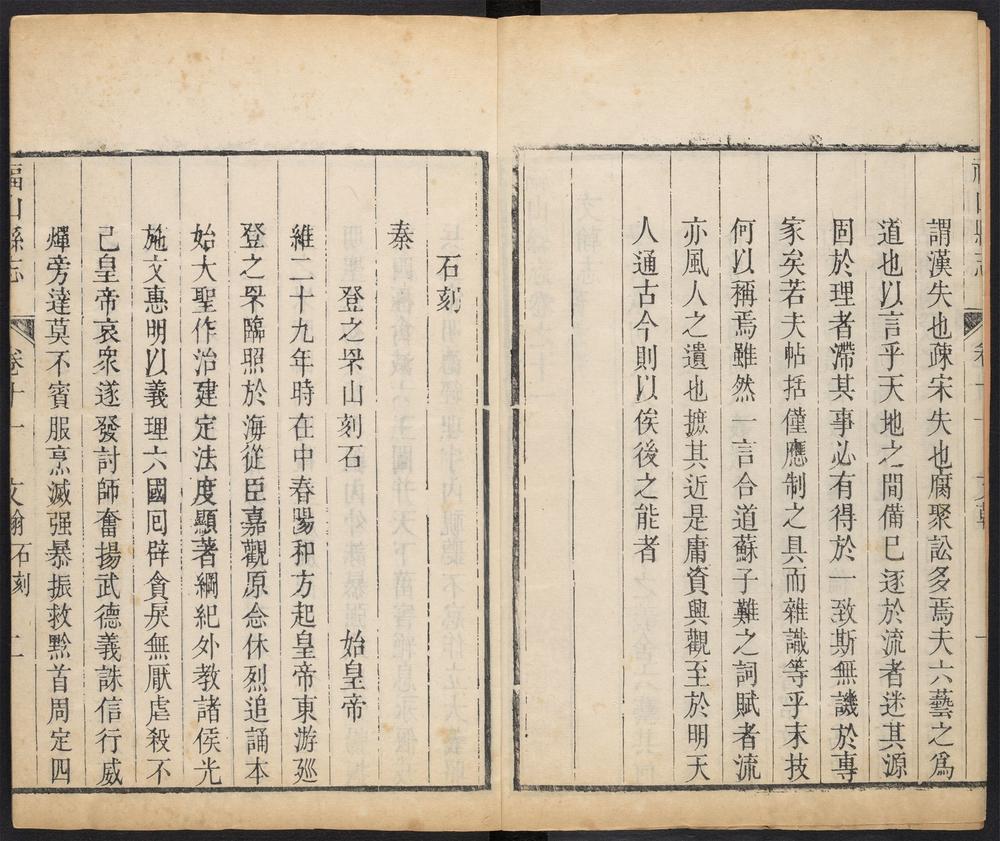 謂漢失也疎宋失也腐聚訟多焉夫六藝之爲
道也以言乎天地之間備巳逐於流者迷其源
固於理者滯其事必有得於一致斯無譏於專
家矣若夫帖括僅應制之具而雜識等乎末技
何以稱焉雖然一言合道蘇子難之詞賦者流
亦風人之遺也摭其近是庸資興觀至於明天
人通古今則以俟後之能者
石刻
秦
登之罘山刻石 始皇帝
維二十九年時在中春陽和方起皇帝東游廵
登之罘臨照於海從臣嘉觀原念休烈追誦本
始大聖作治建定法度顯著綱紀外教諸侯光
施文惠明以義理六國囘辟貪戾無厭虐殺不
己皇帝哀衆遂發討師奮揚武德義誅信行威
燀旁達莫不賓服烹滅强暴振救黔首周定四
福山縣志 卷十一 文翰 石刻 二